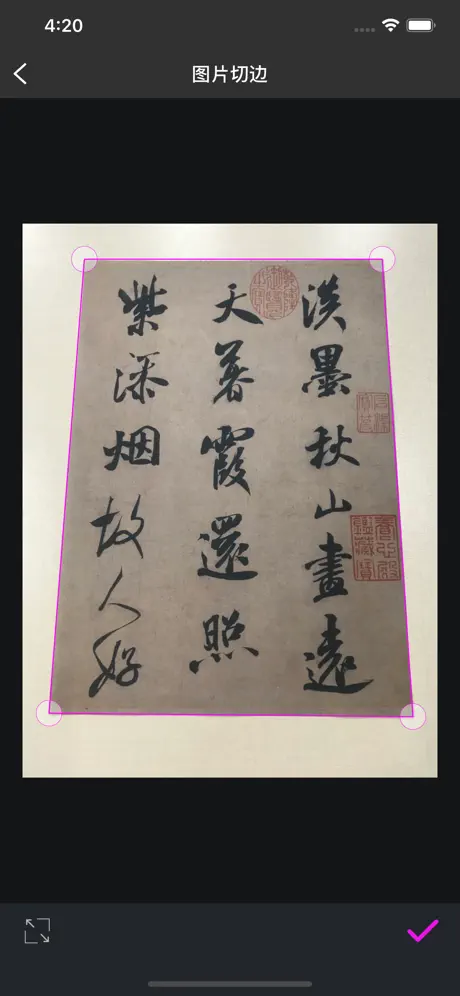 4:20
图片切边
淡墨秋山畫遠
天暮霞還照
紫添烟故人好